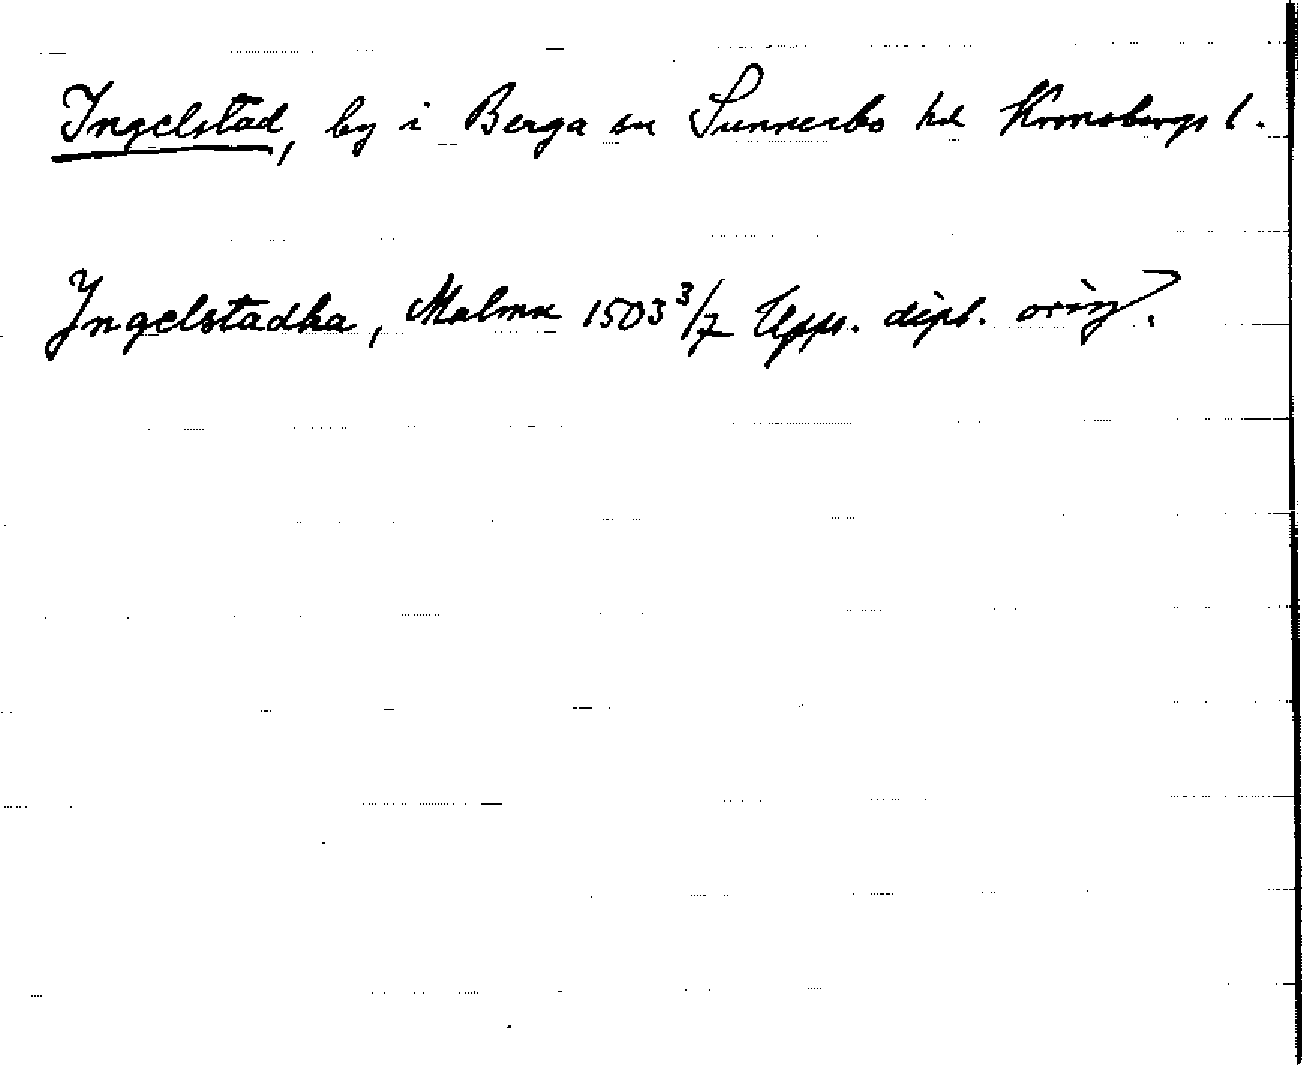 Ingelstad, by i Berga sn Sunnerbo hd Kronobergs l.
Yngelstadha, Malmn 1503 3/7 Upps. dipl. orig.